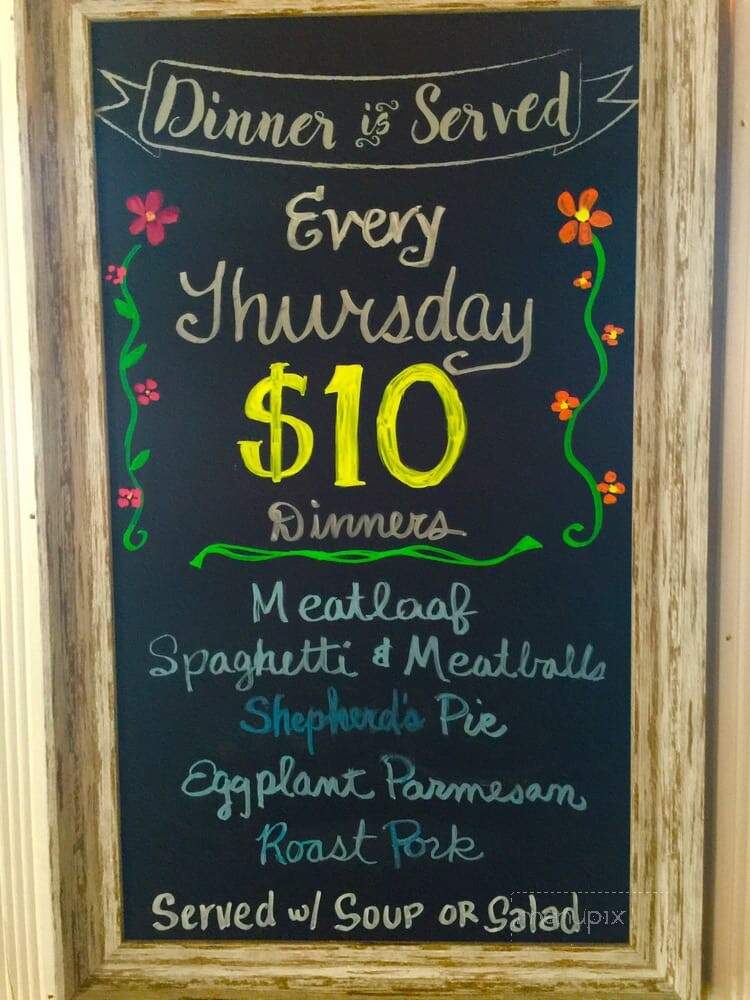 Dinner is Served
Every
Thursday
$10
Dinners
Meatloaf
Spaghetti & Meatballs
Shepherd's Pie
Eggplant Parmesan
Roast Pork
Served w/ Soup or Salad
manupix